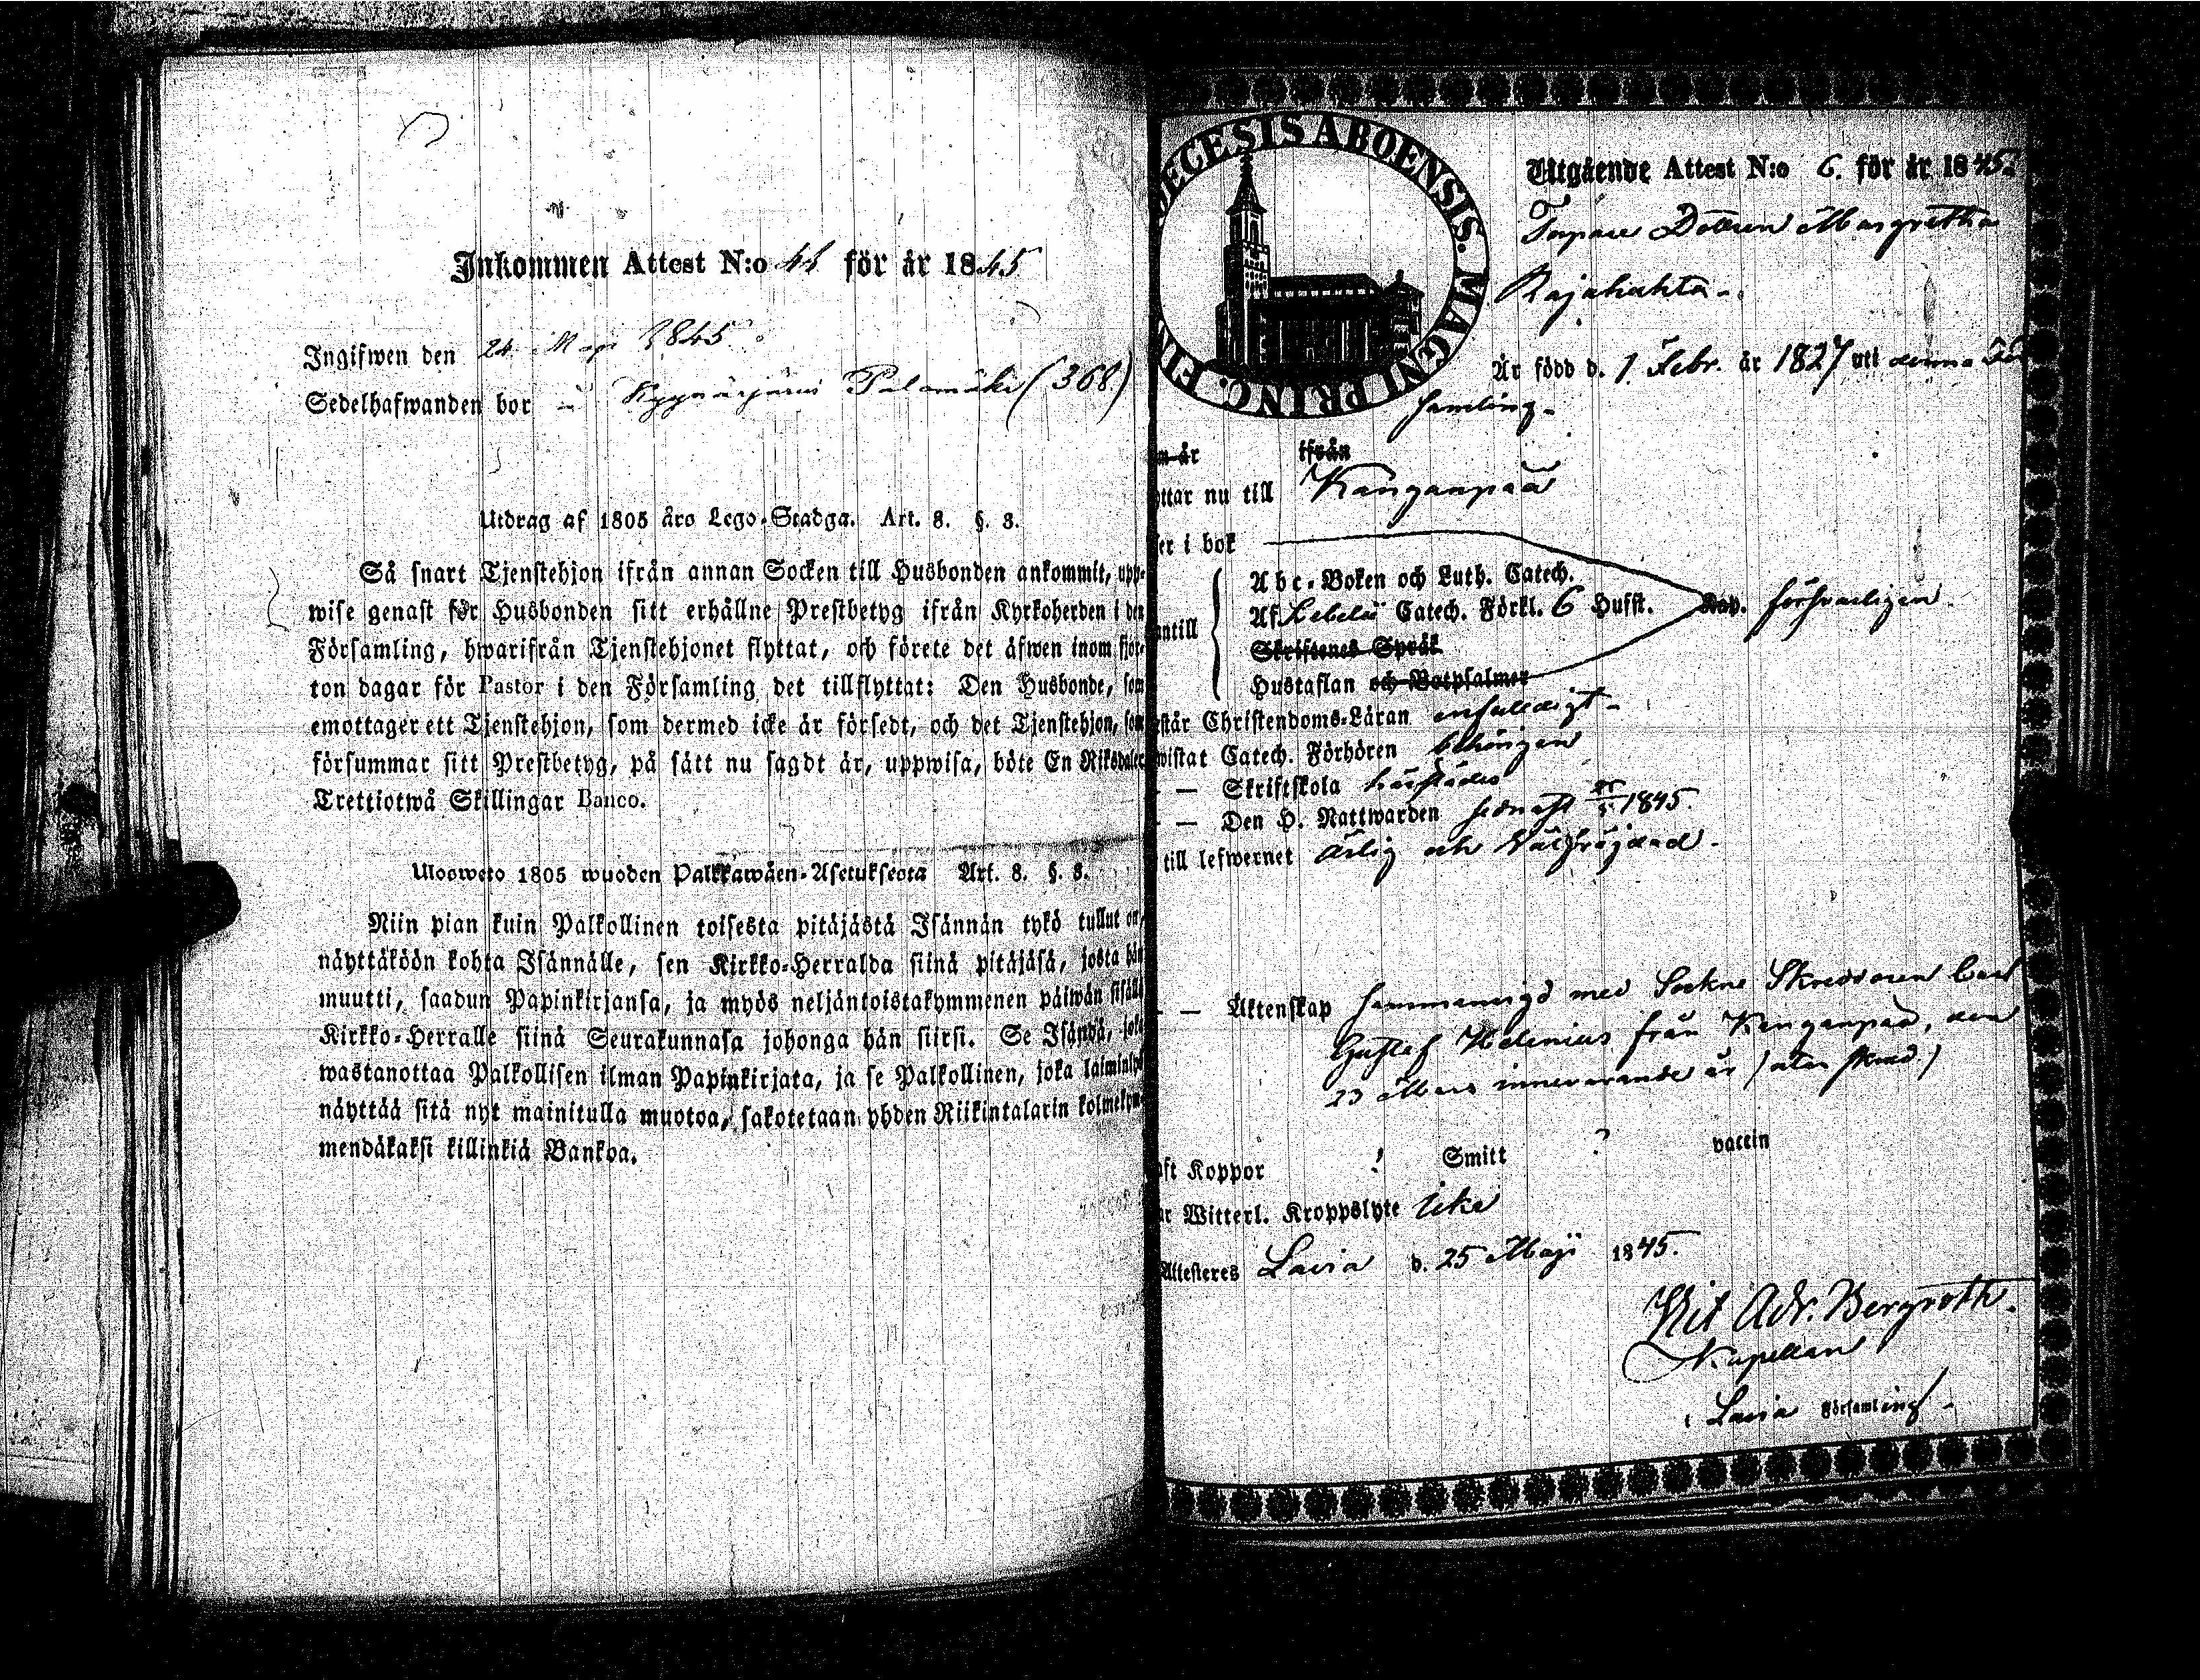 Inkommen Attest N:o 44 för år 1845
Ingifwen den 24 Maji 1845.
Sedelhafwanden bor i Kyynärjärvi Palomäki (368)
Utdrag af 1805 åro Lego-Stadga. Art. 8. §. 3.
Så snart Tjenstehjon ifrån annan Socken till Husbonden ankommit, upp-
wise genast för Husbonden sitt erhållne Prestbetyg ifrån Kyrkoherden i den
Församling, hwarifrån Tjenstehjonet flyttat, och förete det äfwen inom fjor-
ton dagar för Pastor i den Församling det tillflyttat: Den Husbonde, som
emottager ett Tjenstehjon, som dermed icke är försedt, och det Tjenstehjon, som
försummar sitt Prestbetyg, på sätt nu sagdt är, uppwisa, böte En Riksdaler
Trettiotwå Skillingar Banco.
Ulosweto 1805 wuoden Palkkawäen-Asetuksesta Art. 8. §. 3.
Niin pian kuin Palkollinen toisesta pitäjästä Isännän tykö tullut on,
näyttäköön kohta Isännälle, sen Kirkko-Herralda siinä pitäjäsä, josta hän
muutti, saadun Papinkirjansa, ja myös neljäntoistakymmenen päiwän sisällä
Kirkko-Herralle siinä Seurakunnasa johonga hän siirsi. Se Isändä, joka
wastanottaa Palkollisen ilman Papinkirjata, ja se Palkollinen, joka laiminlyö
näyttää sitä nyt mainitulla muotoa, sakotetaan yhden Riikintalarin kolmekym-
mendäkaksi killinkiä Bankoa.
ECESIS ABOENSIS. MAGNI PRINC. FIN
Utgående Attest N:o 6. för år 1845.
Torpare Dottren Margretha
Rajahahta.
Är född d. 1 Febr. år 1827 uti denna För
samling.
n år ifrån
ttar nu till Kanganpää
ser i bok
Abc-Boken och Luth. Catech.
antill Af Lebelii Catech. Förkl. 6 Hufst. Kap. försvarligen.
Skriftenes Språk
Hustaflan och Botpsalmer
står Christendoms-Läran enfaldigt.
wistat Catech. Förhören behörigen
- — Skriftskola härstädes
- — Den H. Nattwarden sednast 1845.
till lefwernet ärlig och Välfräjdad.
- — Äktenskap sammanvigd med Sockne Skräddaren Carl
Gustaf Helenius från Kanganpää, den
23 Mars innevarande år
ft Koppor ! Smitt ? vaccin
r Witterl. Kroppslyte Icke
Attesteres Lavia d. 25 Maji 1845.
Kit Adr. Bergroth.
Kapellan
i Lavia Församling.